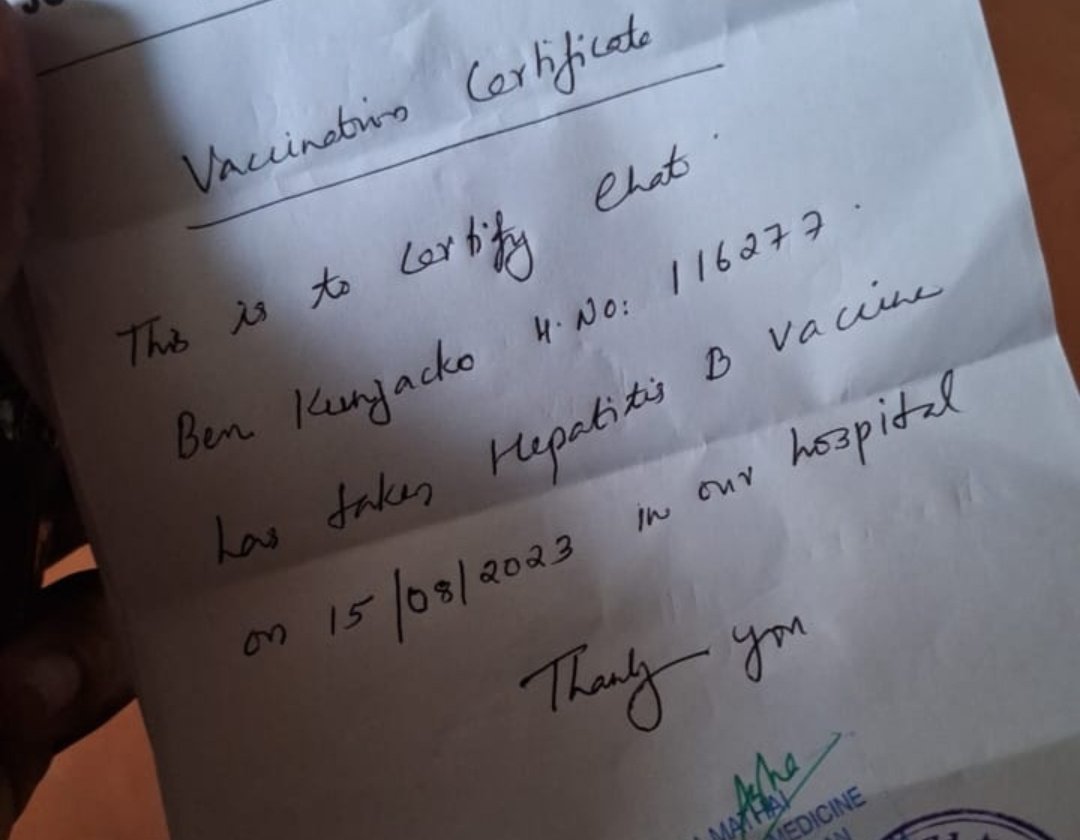 Vaccination Certificate
This is to certify that
Ben Kunjacko H.No: 116277.
has taken Hepatitis B vaccine
on 15/08/2023 in our hospital
Thank you
MATHAI
MEDICINE